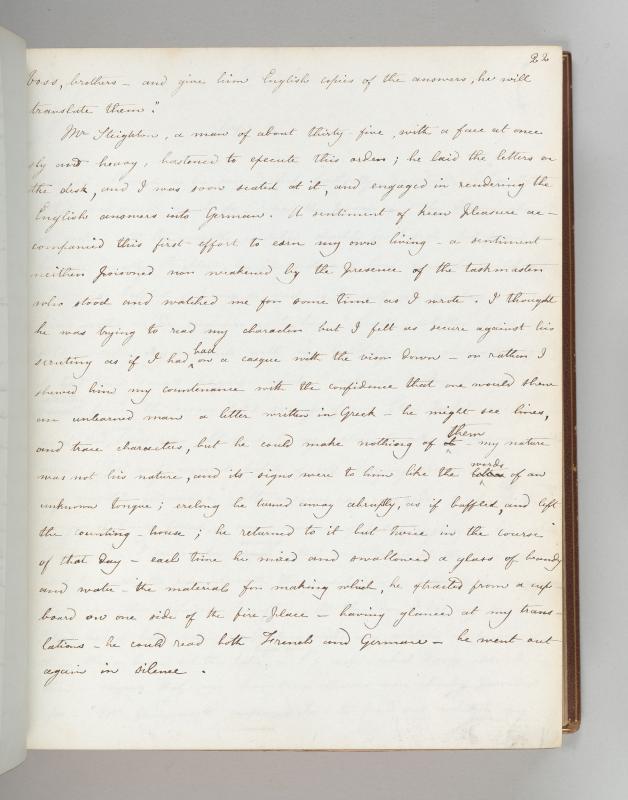 22
boss, brothers – and give him English copies of the answers, he will
translate them."
Mr Steighton, a man of about thirty five, with a face at once
sly and heavy, hastened to execute this order; he laid the letters on
the desk, and I was soon seated at it, and engaged in rendering the
English answers into German. A sentiment of keen pleasure ac-
companied this first effort to earn my own living – a sentiment
neither poisoned nor weakened by the presence of the taskmaster
who stood and watched me for some time as I wrote. I thought
he was trying to read my character but I felt as secure against his
scrutiny as if I had had on a casque with the visor down – or rather I
shewed him my countenance with the confidence that one would shew
an unlearned man a letter written in Greek – he might see lines,
and trace characters, but he could make nothing of them – my nature
was not his nature, and its signs were to him like the words of an
unknown tongue; erelong he turned away abruptly, as if baffled, and left
the counting-house; he returned to it but twice in the course
of that day – each time he mixed and swallowed a glass of brandy
and water – the materials for making which, he extracted from a cup-
board on one side of the fire-place – having glanced at my trans-
lations – he could read both French and German – he went out
again in silence.